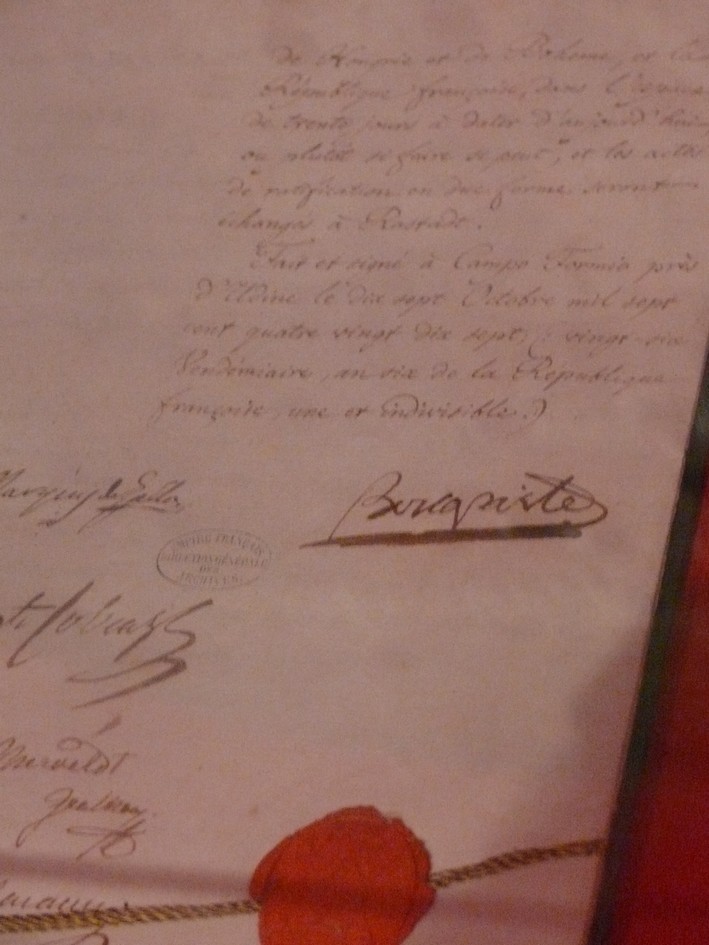 de Hongrie et de Bohême, et la
République française, dans l'espace
de trente jours à dater d'aujourd'hui
ou plutôt si faire se peut, et les actes
de ratification en due forme seront
échangés à Rastadt.
Fait et signé à Campo Formio près
d'Udine le dix sept Octobre mil sept
cent quatre vingt dix sept, (vingt-six
Vendémiaire, an six de la République
française, une et indivisible.)
Bonaparte
EMPIRE FRANÇAIS
DIRECTION GÉNÉRALE
DES
ARCHIVES
Cobenzl
Merveldt